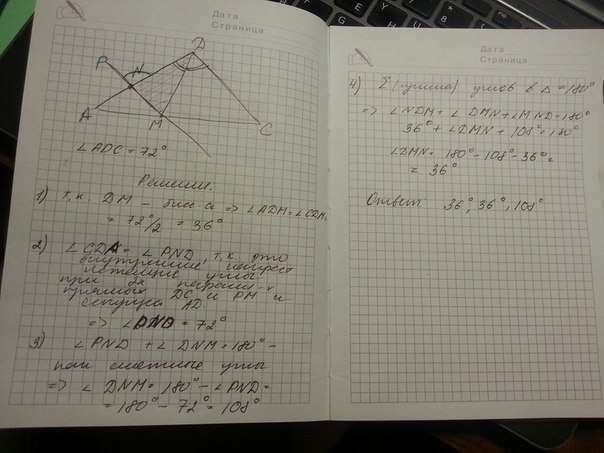 Дата
Страница
P
N
D
A
M
C
∠ADC = 72°
Решение.
1) т.к. DM – бис-са ⇒ ∠ADM = ∠CDM
= 72°/2 = 36°
2) ∠CDA = ∠PND, т.к. это
внутренние накрест
лежащие углы
при параллел-х
прямых DC и PM и
секущей AD
⇒ ∠PND = 72°
3) ∠PND + ∠DNM = 180° –
как смежные углы
⇒ ∠DNM = 180° – ∠PND =
= 180° – 72° = 108°
Дата
Страница
4) Σ (сумма) углов в Δ = 180°
⇒ ∠NDM + ∠DMN + ∠MND = 180°
36° + ∠DMN + 108° = 180°
∠DMN = 180° – 108° – 36° =
= 36°
Ответ 36°, 36°, 108°